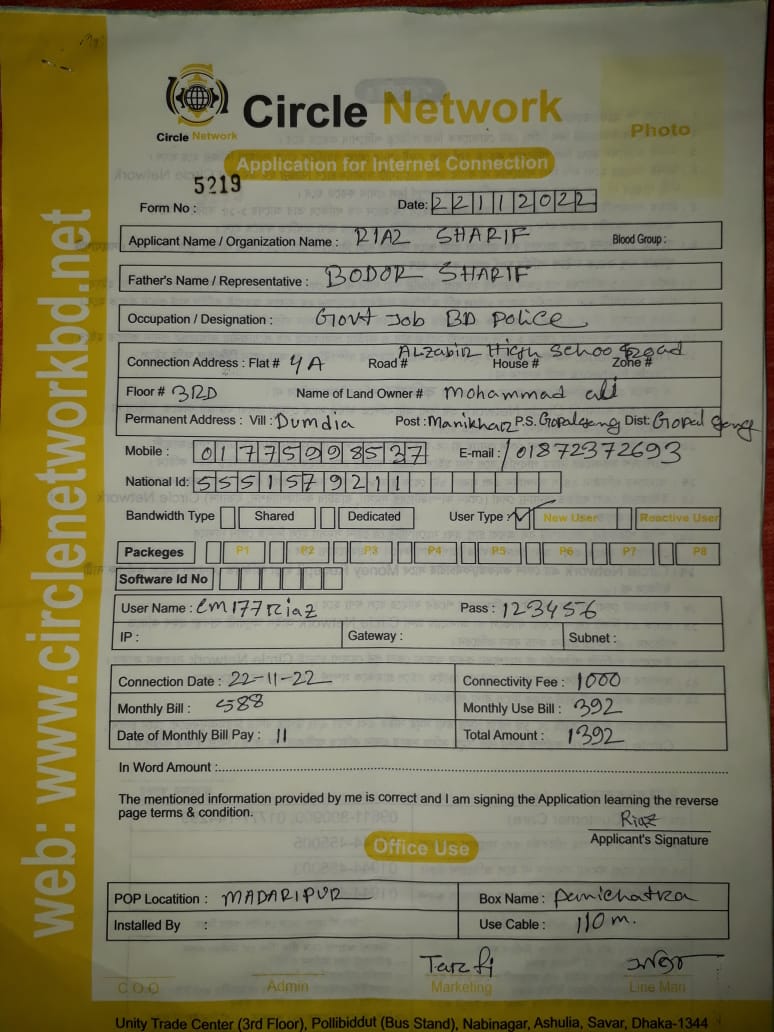 Circle Network
Circle Network
Photo
Application for Internet Connection
5219
Form No : Date: 22112022
Applicant Name / Organization Name : RIAZ SHARIF Blood Group :
Father's Name / Representative : BODOR SHARIF
Occupation / Designation : Govt Job BD Police
ALZabir High School Road
Connection Address : Flat # 4A Road # House # Zone #
Floor # 3RD Name of Land Owner # Mohammad ali
Permanent Address : Vill : Dumdia Post : Manikhar P.S. Gopalgang Dist: Gopalgang
Mobile : 01775998537 E-mail : / 01872372693
National Id: 5551579211
Bandwidth Type Shared Dedicated User Type : New User Reactive User
Packeges P1 P2 P3 P4 P5 P6 P7 P8
Software Id No
User Name : cm177Riaz Pass : 123456
IP : Gateway : Subnet :
Connection Date : 22-11-22 Connectivity Fee : 1000
Monthly Bill : 588 Monthly Use Bill : 392
Date of Monthly Bill Pay : 11 Total Amount : 1392
In Word Amount :
The mentioned information provided by me is correct and I am signing the Application learning the reverse
page terms & condition.
Riaz
Applicant's Signature
Office Use
POP Locatition : MADARIPUR Box Name : Panichatra
Installed By : Use Cable : 110 m.
C.O.O Admin Marketing Line Man
Unity Trade Center (3rd Floor), Pollibiddut (Bus Stand), Nabinagar, Ashulia, Savar, Dhaka-1344
web: www.circlenetworkbd.net